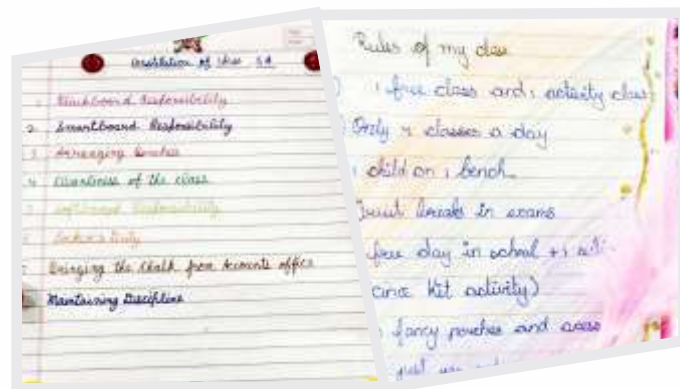 Constitution of Class 5A
1. Blackboard Responsibility
2. Smartboard Responsibility
3. Arranging benches
4. Cleanliness of the class
Softboard Responsibility
Duty
Bringing the Chalk from Accounts office
Maintaining Discipline
Rules of my class
1 free class and 1 activity class
Only 4 classes a day
1 child on 1 bench
breaks in exams
free day in school + 1
Kit activity)
fancy pouches and
just